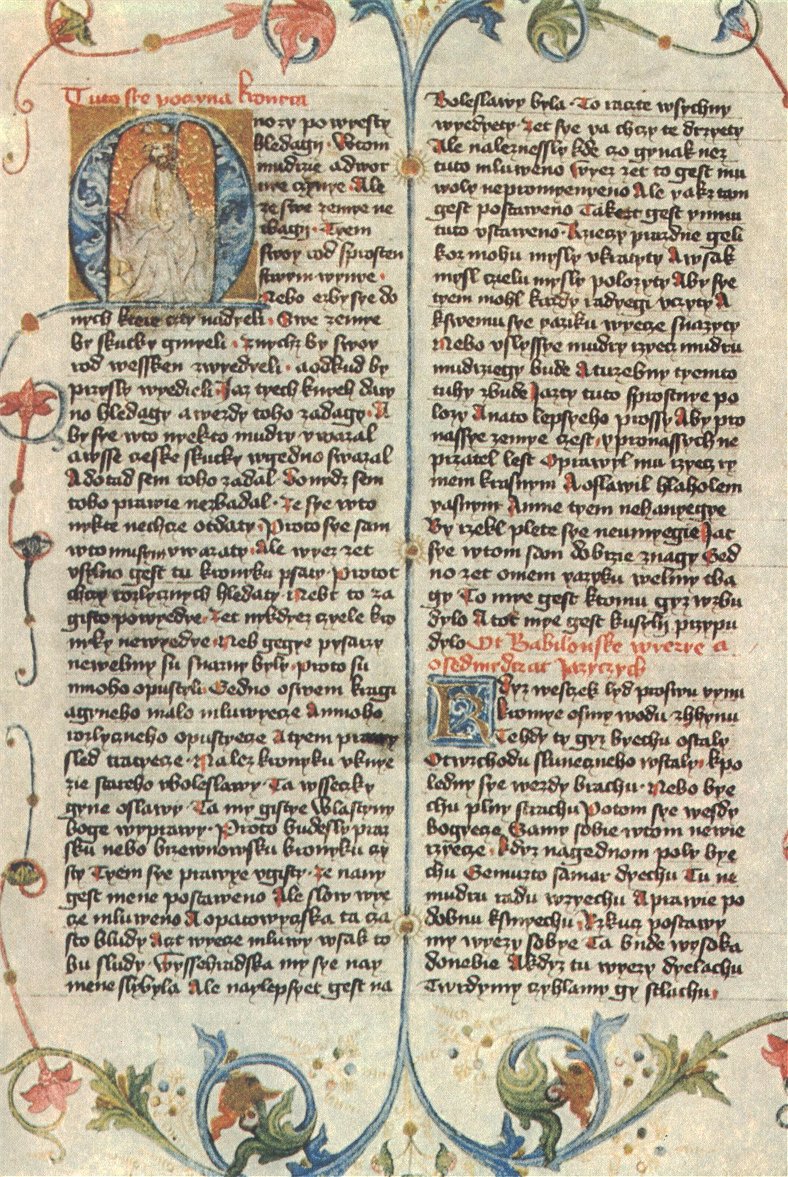 Tuto sye poczyna kronica
Mnozy powyesty
hledagy · Wtom
mudrzie a dwor
nye czynye · Ale
ze swe zemye ne
tbagy · Tyem
swoy rod sprosten
stwym wynye ·
Nebo erbysye do
nych ktere czty nadyeli · Swe zemye
by skutky gmyeli · znychz by swoy
rod wessken zwyedyeli · a odkud by
przysly wyedieli Jaz tyech knyeh daw
no hledagy a werdy toho zadagy · A
by sye wto nyekto mudry vwazal
a wsse czeske skutky wgedno swazal
A dotad sem toho zadal Donydz sem
toho prawie nezbadal · Ze sye wto
nykte nechcze otdaty Proto sye sam
wto musym vwazaty · Ale wyez zet
vsylno gest tu kronyku psaty Protot
chczy rozlycznych hledaty · Nebt to za
gisto powyedye · Zet nykdyez czyele kro
nyky newyedye · Neb gegye pysarzy
newelmy su snazny byly · proto su
mnoho opustyli · Gedno oswem kragi
a gyneho malo mluwyecze A mnoho
rozlyczneho opustyecze A tyem prawy
sled tratyecze · Nalez kronyku vknye
zie stareho wboleslawy · Ta wsseczky
gyne oslawy · Ta my gistye wlastyny
boge wyprawy · Proto budesly praz
sku nebo brzewnowsku kronyku czy
sty Tyem sye prawye vgisty · Ze nany
gest mene postaweno Ale slow wye
cze mluweno A opatowyczska ta cza
sto bludy Azt wyecze mluwy wsak to
bu sludy · Wyssehradska my sye nay
mene slybyla Ale naylepsyet gest na
Boleslawy byla · To raczte wsychny
wyedyety · Zet sye pa chczy te drzyety
Ale naleznessly kde czo gynak nez
tuto mluweno Wyez zet to gest mu
woly nepromyenyeno Ale yakz tam
gest postaweno Takezt gest ynmu
tuto vstaweno · Rzeczy prazdne geli
koz mohu mysly vkratyty A wsak
mysl czielu mysly polozyty Aby sye
tyem mohl kazdy radyegi vczyty A
kswemu sye yaziku wyecze snazyty
Nebo vslyssye mudry rzyecz mudru
mudrziegy bude A turzebny tyemto
tuhy zbude Jazty tuto sprostnye po
lozy A nato lepsyeho prossy Aby pro
nassye zemye czest · y pronassych ne
przatel lest Oprawyl mu rzyecz ry
mem krasnym A oslawil hlaholem
yasnym A mne tyem nehanyegye
By rzekl plete sye neumyegie Jat
sye wtom sam dobrzie znagy Ged
no zet omem yazyku welmy tba
gy To mye gest ktomu gyz wzbu
dylo A tot mye gest kusyly przypu
dylo Ot Babilonske wyezye a
o sedmdesat Jazyczych
Kdyz wesczek lyd proswu vynu
kromye osmy wodu zhbynu
Tehdy ty gyz byechu ostaly
Otwzchodu sluneczneho wstaly · kpo
ledny sye werdy brachu · Nebo bye
chu plny strachu Potom sye wesdy
bogyecze Samy sobie wtom newie
rzyecze · kdyz nagednom poly bye
chu Semurto samar dyechu Tu ne
mudru radu wzyechu A prawie po
dobnu ksmyechu · Rzkucz postawy
my wyezy sobye Ta bude wysoka
donebie A kdyz tu wyezy dyelachu
Twrdymy czyhlamy gy sklachu ·